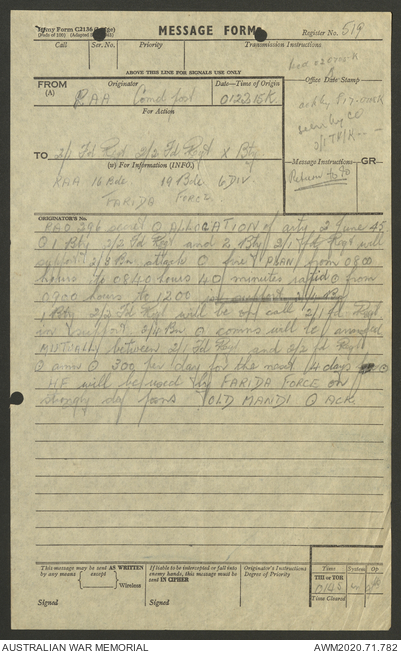 Army Form C2136 (Large)
MESSAGE FORM
Register No. 519
Call Ser. No. Priority Transmission Instructions
ABOVE THIS LINE FOR SIGNALS USE ONLY
FROM (A) Originator Date—Time of Origin Office Date Stamp
RAA Comd post 012215K
TO 2/1 Fd Regt 2/2 Fd Regt X Bty
(W) For Information (INFO.) Message Instructions GR
RAA 16 Bde 19 Bde 6 DIV
FARIDA FORCE
ORIGINATOR'S No.
RAO 296 secret O ALLOCATION of arty 2 June 45
O 1 Bty 2/2 Fd Regt and 2 Bty 2/1 Fd Regt will
support 2/8 Bn attack O fire PLAN from 0800
hours to 0840 hours 40 minutes O from
0900 hours to 1200
1 Bty 2/2 Fd Regt will be on call 2/1 Fd Regt
in support 2/4 Bn O comns will be arranged
MUTUALLY between 2/1 Fd Regt and 2/2 Fd Regt
O amn O 300 per day for the next 14 days O
HF will be used by FARIDA FORCE on
strongly def posns OLD MANDI O ACK
This message may be sent AS WRITTEN by any means (except) Wireless
If liable to be intercepted or fall into enemy hands, this message must be sent IN CIPHER
Originator's Instructions Degree of Priority
Time System Op
THI or TOR
Time Cleared
Signed Signed
AUSTRALIAN WAR MEMORIAL AWM2020.71.782